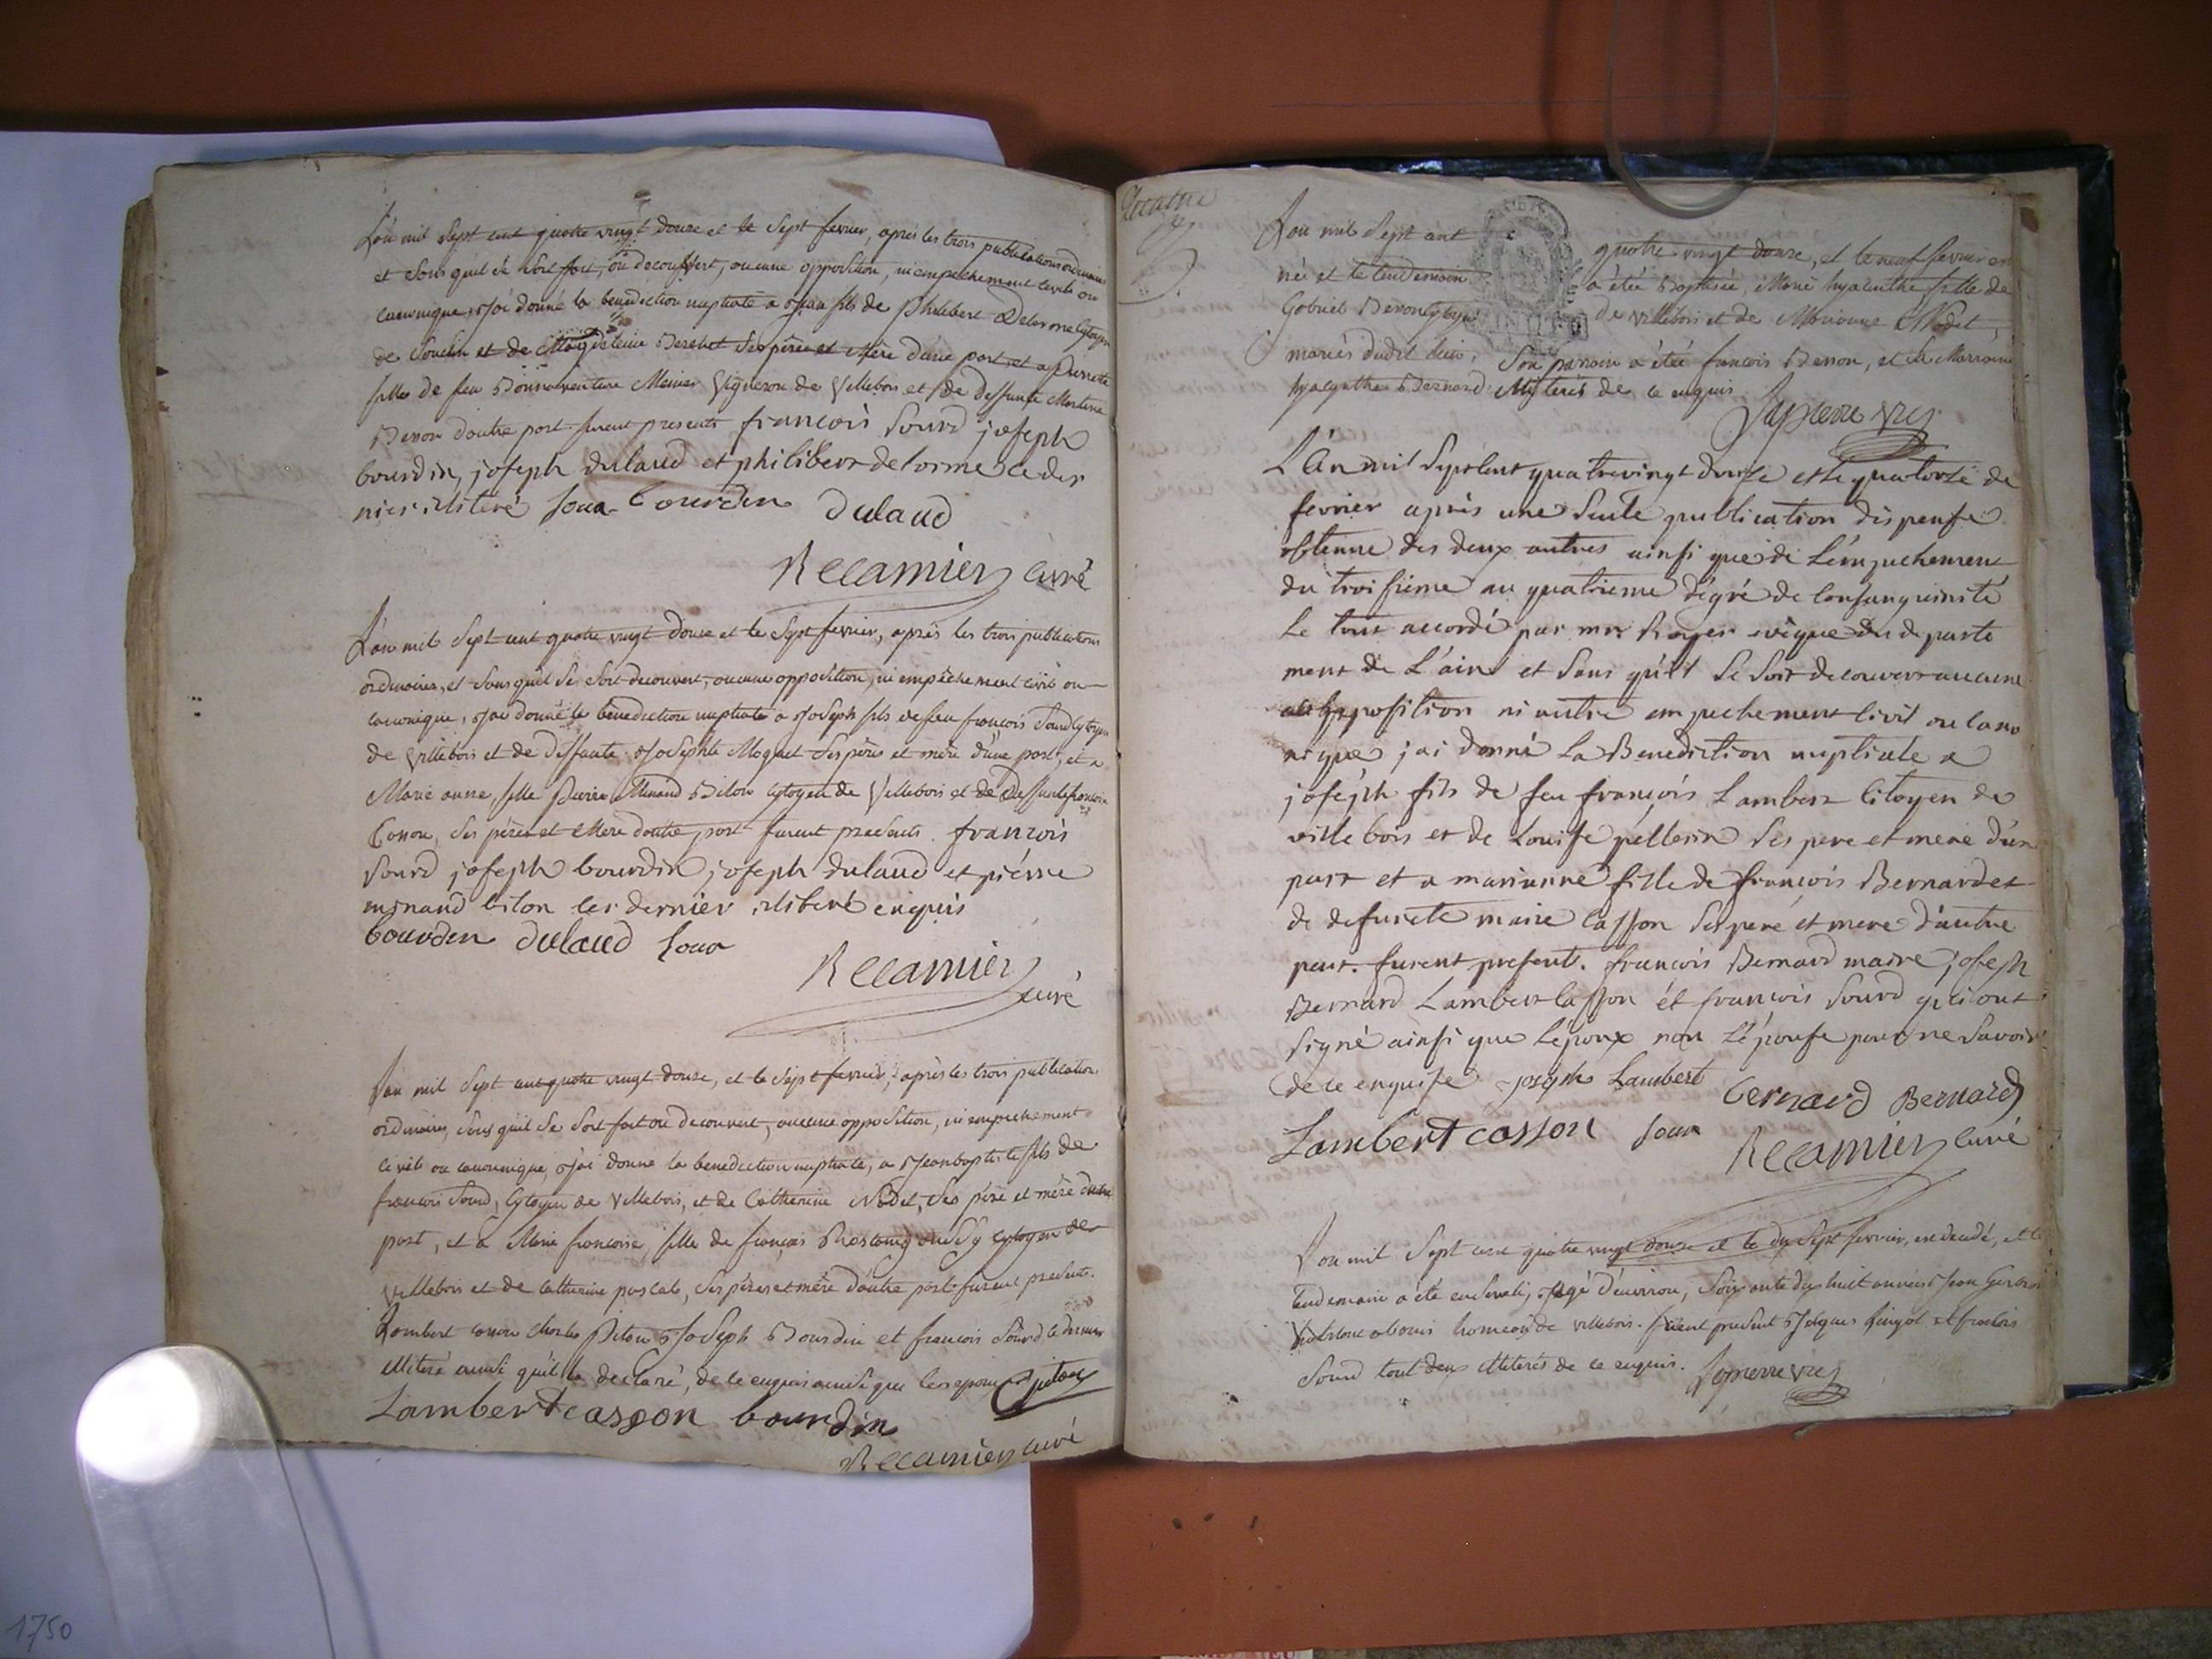 L'an mil Sept cent quatre vingt douze et le Sept fevrier, apres les trois publications ordinaires
et sans quil se soit fait, ou decouvert, aucune opposition, ni empechement civile ou
canonique, J'ai donné la benediction nuptiale a Jean fils de Philibert Delorme Cytoyen
de Souclin et de Magdeleine Berthet Ses pères et Mère d'une part et a Pierrette
fille de feu Bonnaventure Meunier Vigneron de Villebois et de deffunte
Besson d'autre part furent presents françois Sourd joseph
bourdin, joseph dulaud et philibert delorme ce der
nier illiteré Sour bourdin Dulaud
Recamier curé
L'an mil Sept cent quatre vingt douze et le Sept fevrier, après les trois publications
ordinaires, et sans quil se soit decouvert, aucune opposition, ni empêchement civil ou
canonique, J'ai donné la benediction nuptiale a Joseph fils de feu françois Sourd Cytoyen
de Villebois et de deffunte Josephte Moquet Ses pères et mère d'une part, et a
Marie anne, fille Pierre Minand Bilon Cytoyen de Villebois et de Deffunte françoise
Casson, Ses pères et Mere d'autre part furent presents. françois
Sourd joseph bourdin, joseph dulaud et piérre
minand bilon ces dernier illiteré enquis
bourdin dulaud Sour
Recamier
curé
L'an mil Sept cent quatre vingt douze, et le Sept fevrier, après les trois publications
ordinaires, sans quil se soit fait ou decouvert, aucune opposition, ni empechement
civile ou canonique, J'ai donné la benediction nuptiale, a Jean baptiste fils de
francois Sourd, Cytoyen de Villebois, et de Catherine Nodet, Ses père et mère d'une
part, et a Marie francoise, fille de françois cytoyen de
Villebois et de Catherine pascale, Ses pères et mère d'autre part furent presents.
Lambert casson Charles Piton Joseph Bourdin et francois Sourd le dernier
illiteré ainsi qu'il la declaré, de ce enquis ainsi que les epoux Cpiton
Lambert casson bourdin
Recamier curé
Quatre
L'an mil Sept cent quatre vingt douze, et le neuf fevrier est
née et le lendemain a étée Baptisée, Marie hyacinthe fille de
Gabriel Besson Cytoyen de Villebois et de Marianne Nodet,
mariés dudit lieu, Son parrain a étée francois Besson, et la Marraine
hyacinthe Bernard illiterés de ce enquis
Japierre vic
L'An mil Sept Cent quatrevingt douze et le quatorze de
fevrier après une Seule publication dispense
obtenue des deux autres ainsi que de l'émpechement
du troisiéme au quatriéme dégré de Consanguinité
le tout accordé par mr Royer evéque du departe
ment de L'ain et Sans qu'il Se Soit decouvert aucune
opposition ni autre empechement Civil ou Cano
nique j'ai donné la Benediction nuptiale a
joséph fils de feu françois Lambert Citoyen de
ville bois et de Louise pellerin Ses pere et mere d'une
part et a marianne fille de françois Bernard et
de defunte marie Casson Ses pere et mere d'autre
part. furent presents. françois Bernard maire, joseph
Bernard Lambert Casson ét françois Sourd qui ont
Signé ainsi que l'époux non l'épouse pour ne Savoir
de ce enquise joseph Lambert bernard Bernard
Lambert casson Sour
Recamier curé
L'an mil Sept cent quatre vingt douze et le dix Sept fevrier, est decedé, et le
lendemain a été enseveli, agé d'environ, Soixante dix huit années Jean
de villebois. furent present Jacques et francois
Sourd tout deux illiterés de ce enquis. Japierre vic
1750